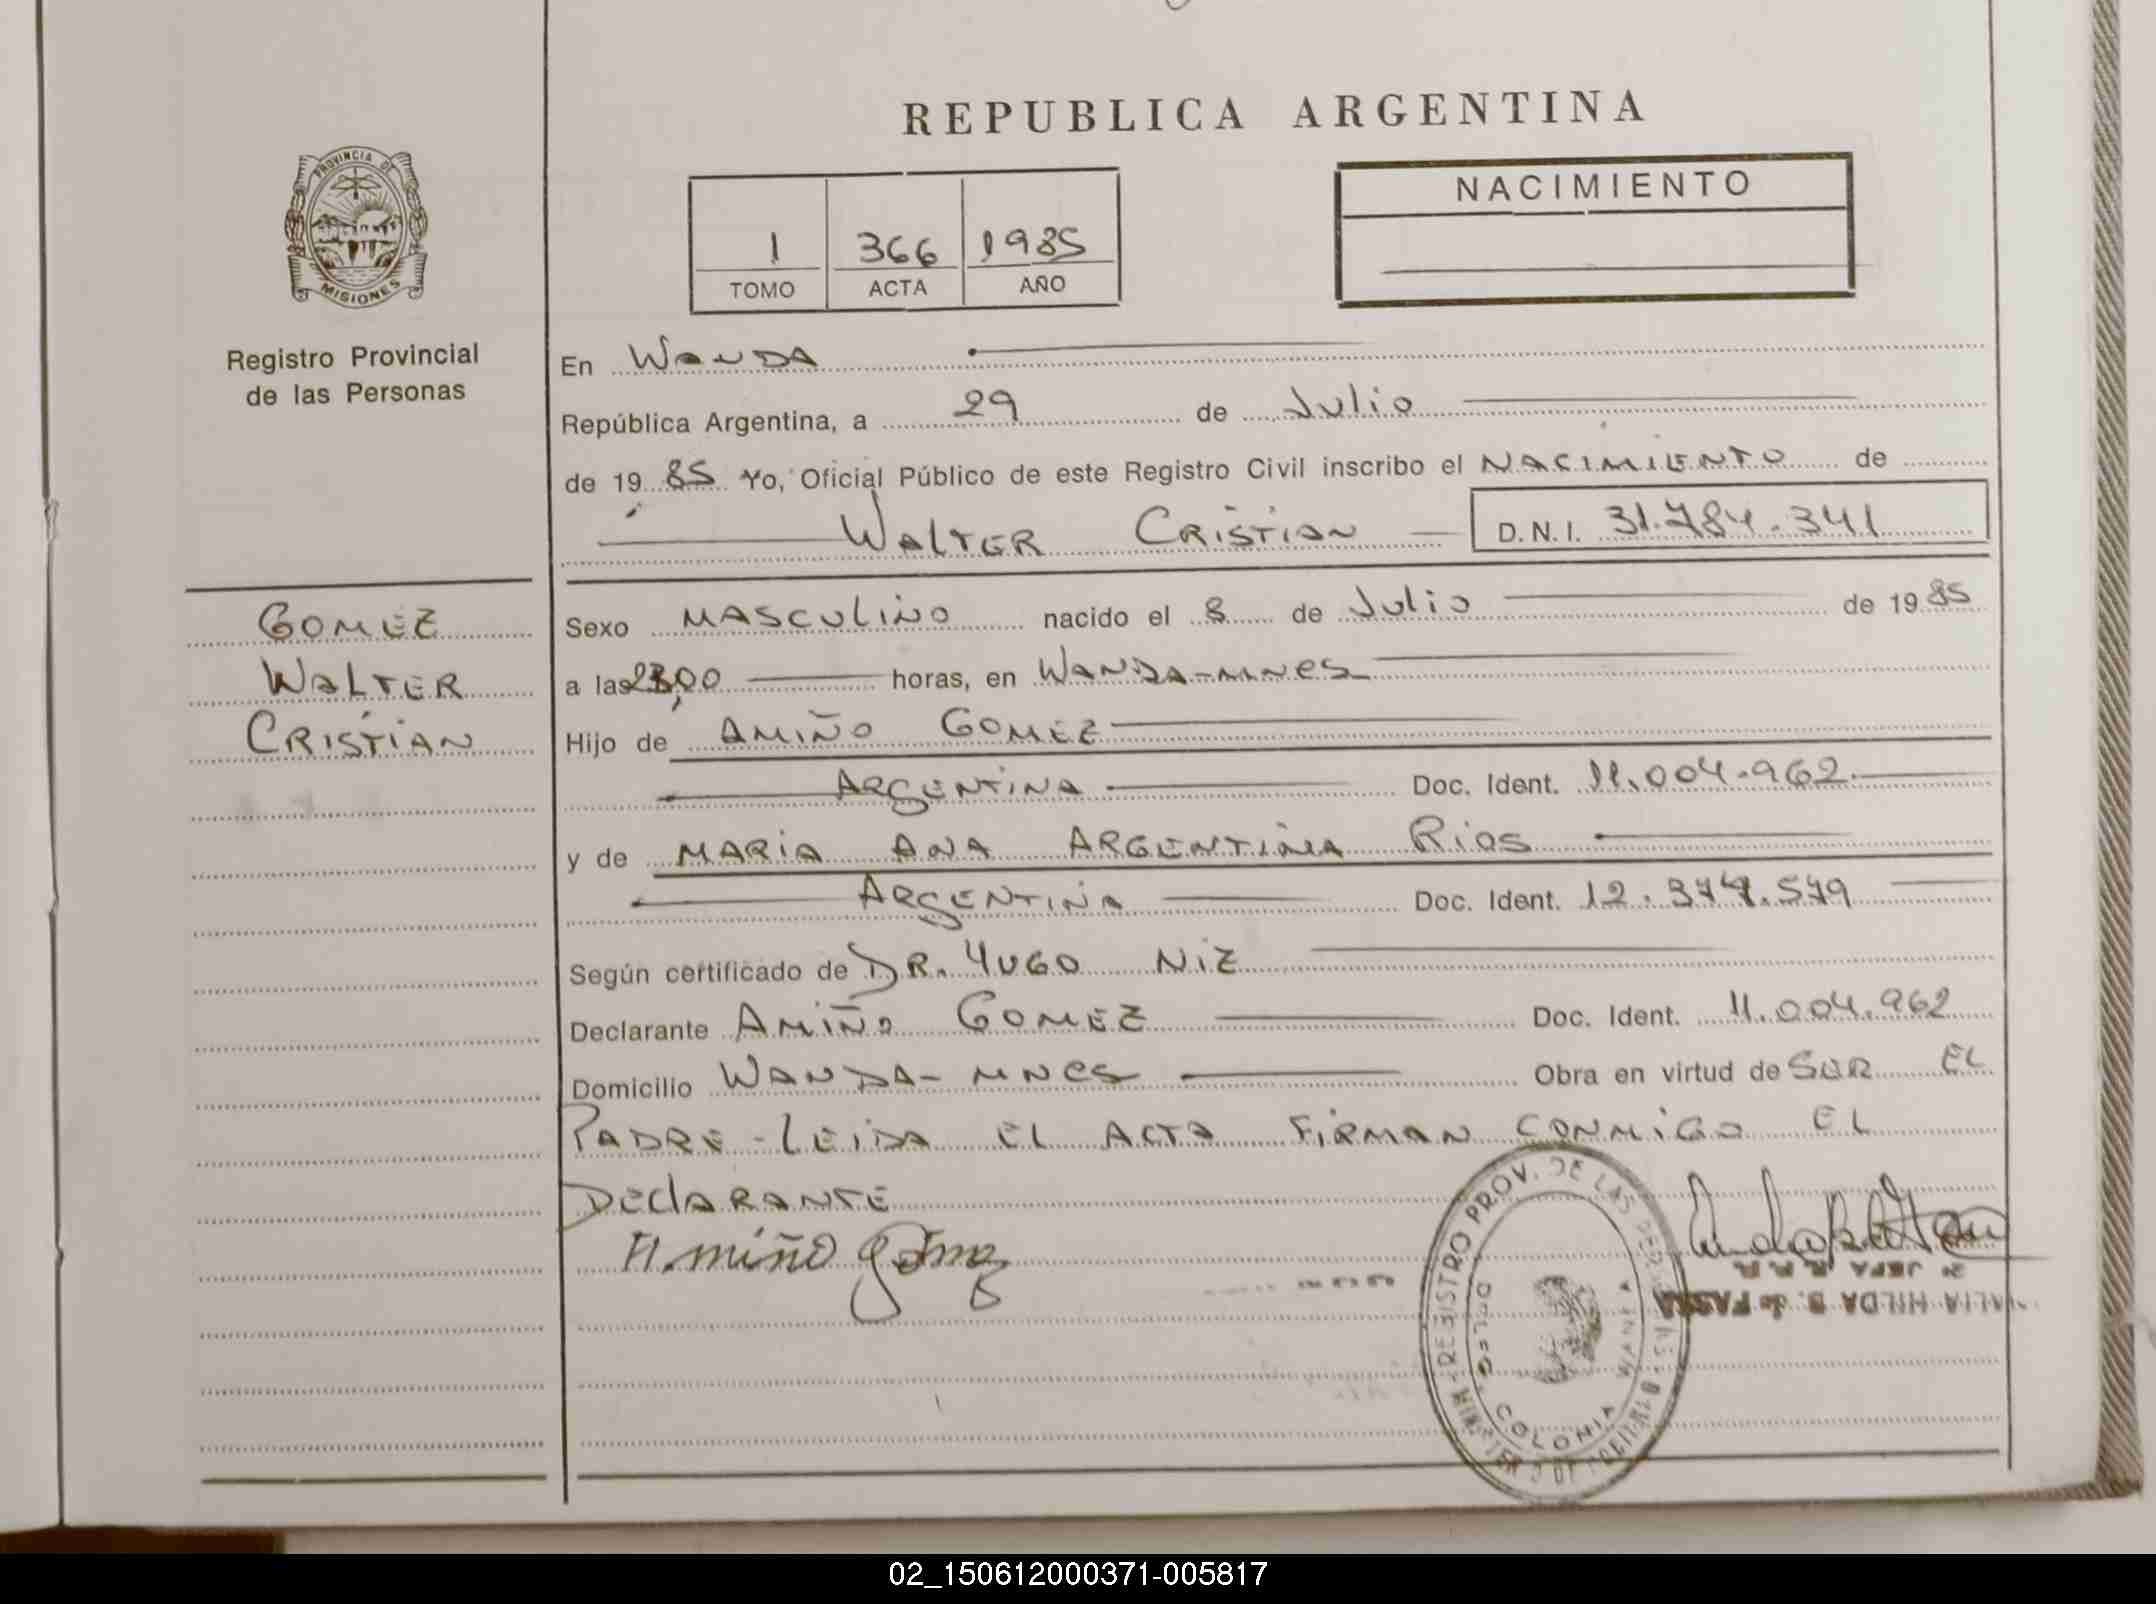 REPUBLICA ARGENTINA
PROVINCIA DE
MISIONES
Registro Provincial
de las Personas
1 366 1985
TOMO ACTA AÑO
NACIMIENTO
En WANDA
República Argentina, a 29 de Julio
de 19 85 Yo, Oficial Público de este Registro Civil inscribo el NACIMIENTO de
WALTER CRISTIAN D.N.I. 31.784.341
GOMEZ
WALTER
CRISTIAN
Sexo MASCULINO nacido el 8 de Julio de 19 85
a las 23,00 horas, en WANDA-MNES
Hijo de AMIÑO GOMEZ
ARGENTINA Doc. Ident. 11.004.962
y de MARIA ANA ARGENTINA RIOS
ARGENTINA Doc. Ident.
Según certificado de DR. HUGO NIZ
Declarante AMIÑO GOMEZ Doc. Ident. 11.004.962
Domicilio WANDA-MNES Obra en virtud de SER EL
PADRE-LEIDA EL ACTA FIRMAN CONMIGO EL
DECLARANTE
Amiño Gomez
REGISTRO PROV. DE LAS PERSONAS
COLONIA WANDA
JEFA R.P.P.
HILDA B. de
02_150612000371-005817